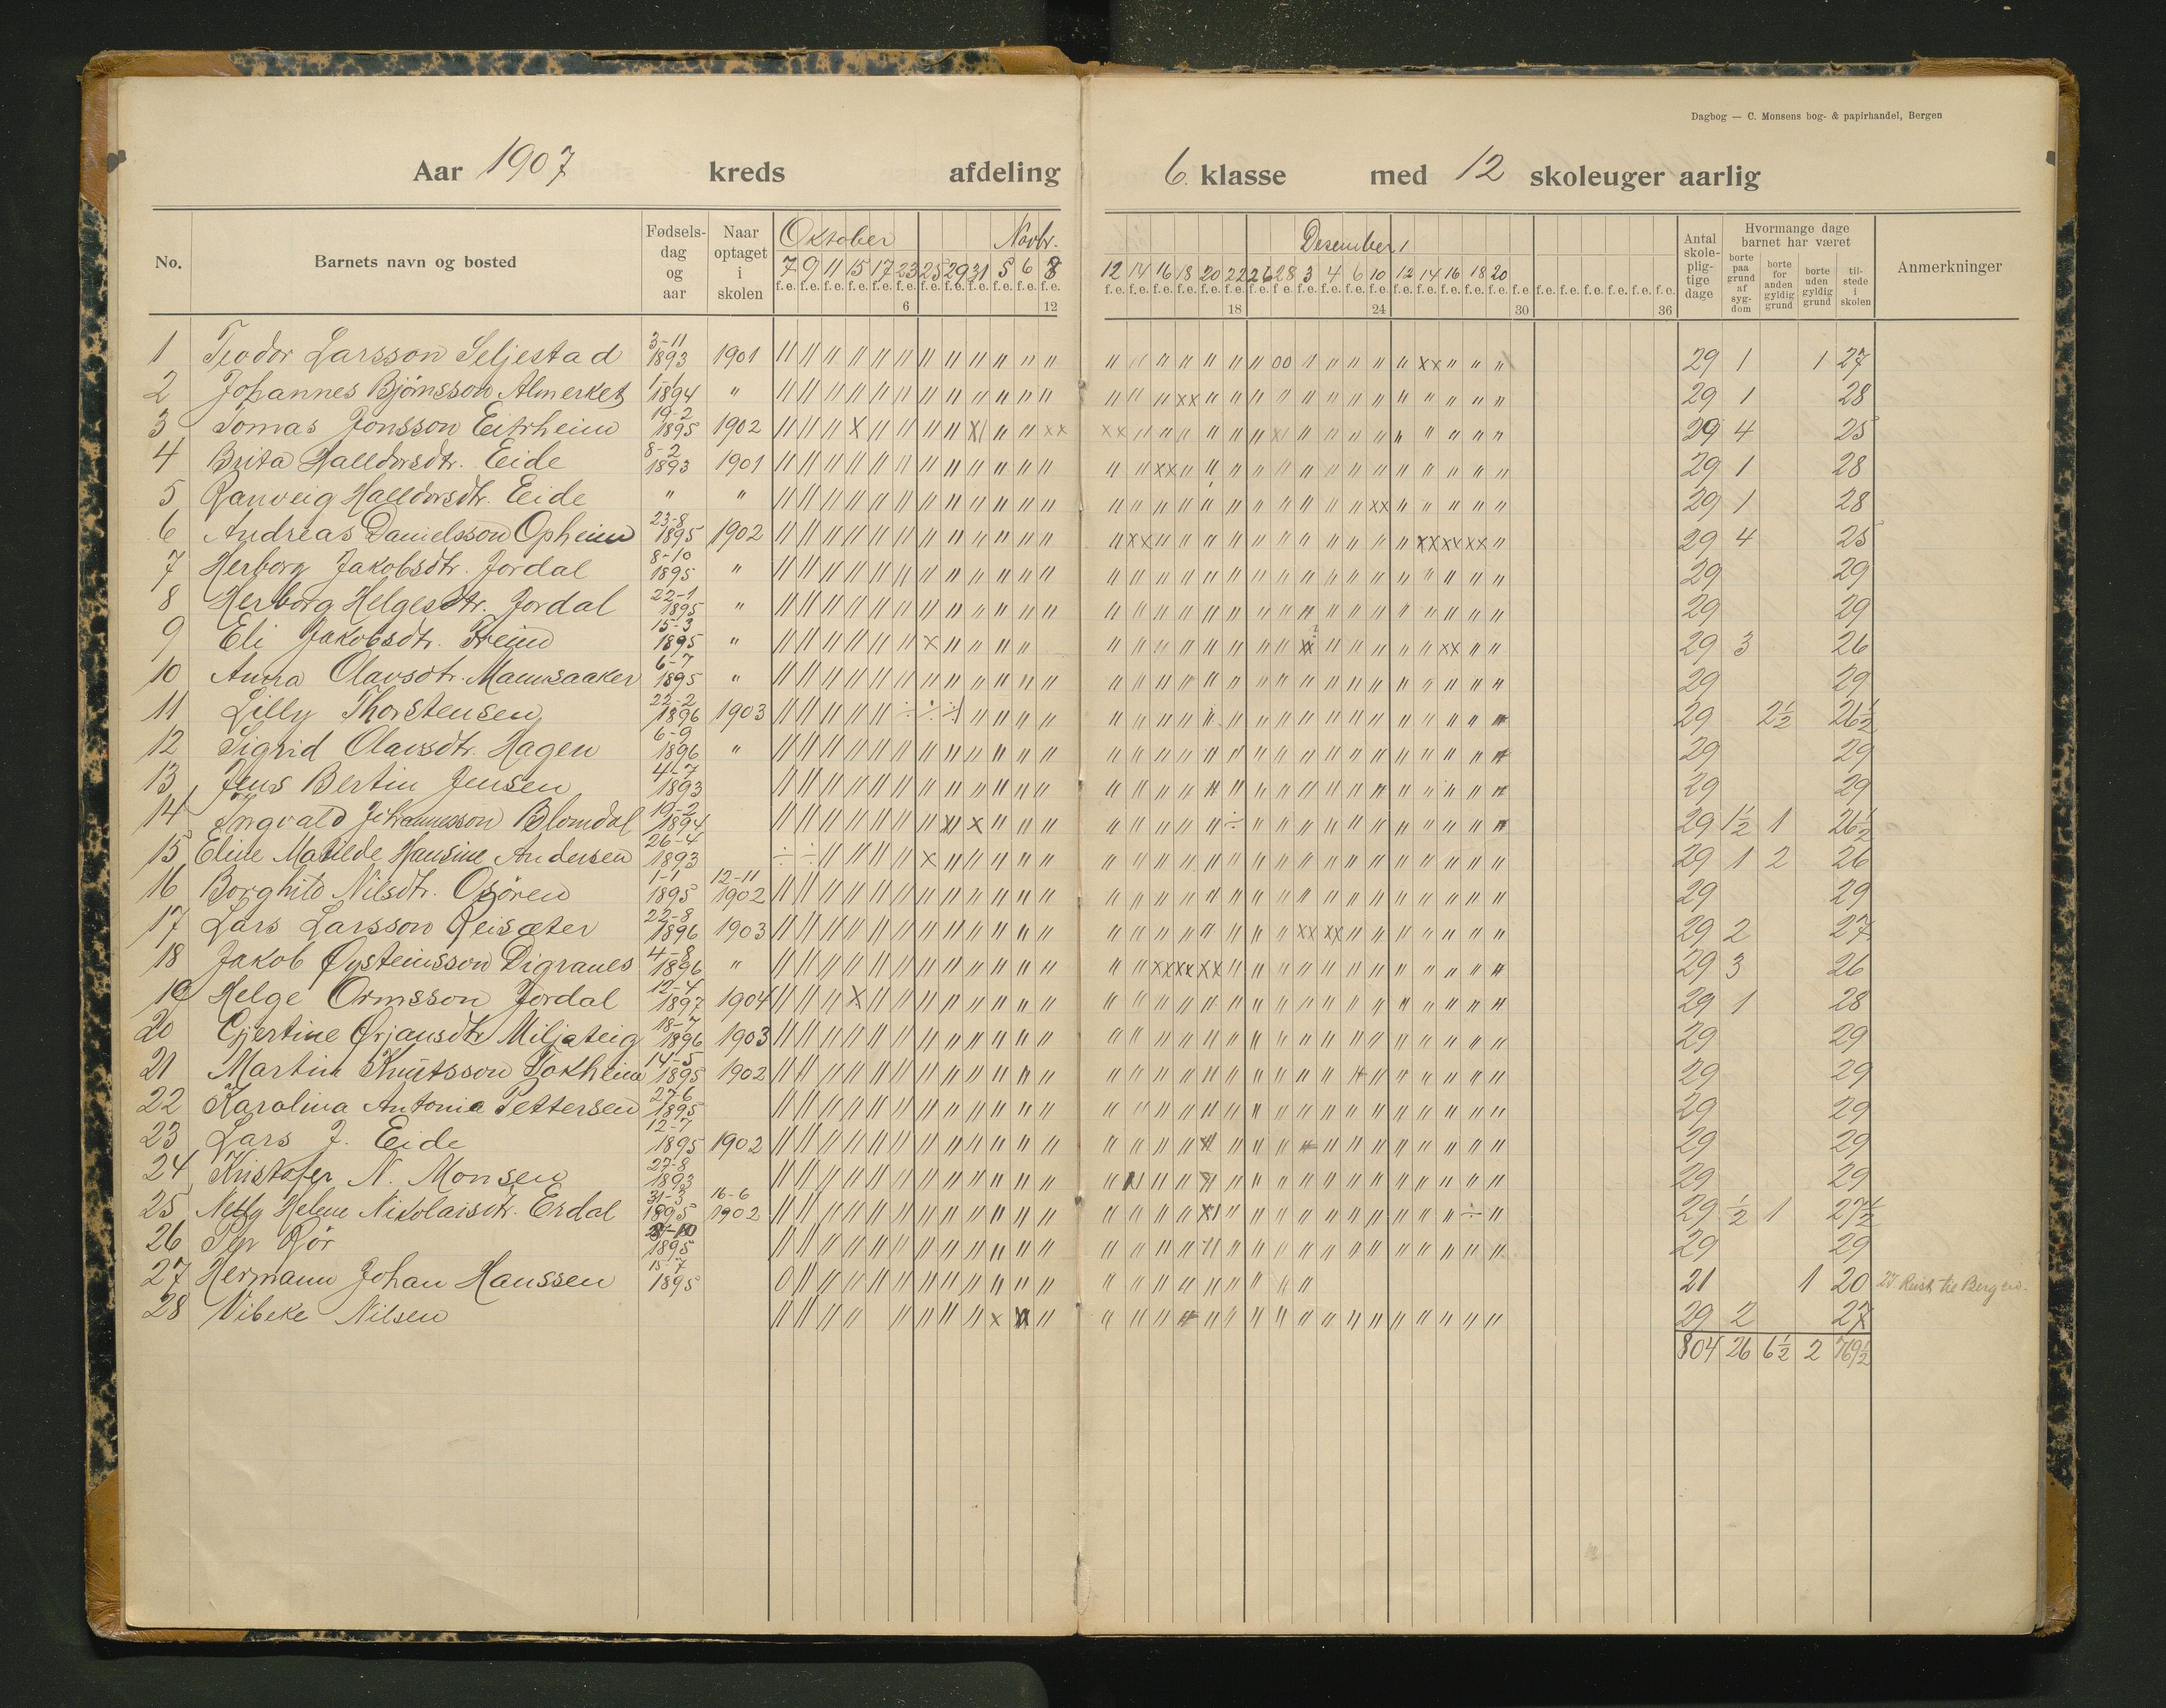 Dagbog — C. Monsens bog- & papirhandel, Bergen
Aar 1907 kreds afdeling 6. klasse med 12 skoleuger aarlig
No. Barnets navn og bosted Fødsels-dag og aar Naar optaget i skolen Oktober Novbr. Desember Antal skole-plig-tige dage Hvormange dage barnet har været Anmerkninger
borte paa grund af syg-dom borte for anden gyldig grund borte uden gyldig grund til-stede i skolen
7 9 11 15 17 23 25 29 31 5 6 8 12 14 16 18 20 22 26 28 3 4 6 10 12 14 16 18 20
f.e. f.e. f.e. f.e. f.e. f.e. f.e. f.e. f.e. f.e. f.e. f.e. f.e. f.e. f.e. f.e. f.e. f.e. f.e. f.e. f.e. f.e. f.e. f.e. f.e. f.e. f.e. f.e. f.e. f.e. f.e. f.e. f.e. f.e. f.e. f.e.
6 12 18 24 30 36
1 Teodor Larsson Seljestad 3-11 1893 1901 29 1 1 27
2 Johannes Bjørnsson Almerket 1-1 1894 " 29 1 28
3 Tomas Jonsson Eitrheim 19-2 1895 1902 29 4 25
4 Brita Halldorsdtr. Eide 8-2 1893 1901 29 1 28
5 Ranveig Halldorsdtr. Eide " " 29 1 28
6 Andreas Danielsson Opheim 23-8 1895 1902 29 4 25
7 Herborg Jakobsdtr. Jordal 8-10 1895 " 29 29
8 Herborg Helgesdtr. Jordal 22-1 1895 " 29 29
9 Eli Jakobsdtr. Freim 15-3 1895 " 29 3 26
10 Anna Olavsdtr. Mannsaaker 6-7 1895 " 29 29
11 Lilly Thorstensen 22-2 1896 1903 29 2½ 26½
12 Sigrid Olavsdtr. Hagen 6-9 1896 " 29 29
13 Jens Bertin Jensen 4-7 1893 29 29
14 Ingvald Johannesson Blomdal 19-2 1894 29 1½ 1 26½
15 Elide Matilde Hansine Andersen 26-4 1893 29 1 2 26
16 Borghild Nilsdtr. Osøren 1-1 1895 12-11 1902 29 29
17 Lars Larsson Reisæter 22-8 1896 1903 29 2 27
18 Jakob Øysteinsson Digranes 4-8 1896 " 29 3 26
19 Helge Ormsson Jordal 12-4 1897 1904 29 1 28
20 Gjertine Ørjansdtr. Miljateig 18-7 1896 1903 29 29
21 Martin Knutsson Tokheim 14-5 1895 1902 29 29
22 Karolina Antonia Pettersen 27-6 1895 29 29
23 Lars J. Eide 12-7 1895 1902 29 29
24 Kristofer N. Monsen 27-8 1893 29 29
25 Nelly Helene Nikolaisdtr. Erdal 31-3 1895 16-6 1902 29 ½ 1 27½
26 Per Rör 1895 29 29
27 Hermann Johan Hanssen 15-7 1895 21 1 20 27. Reist til Bergen.
28 Vibeke Nilsen 29 2 27
804 26 6½ 2 769½